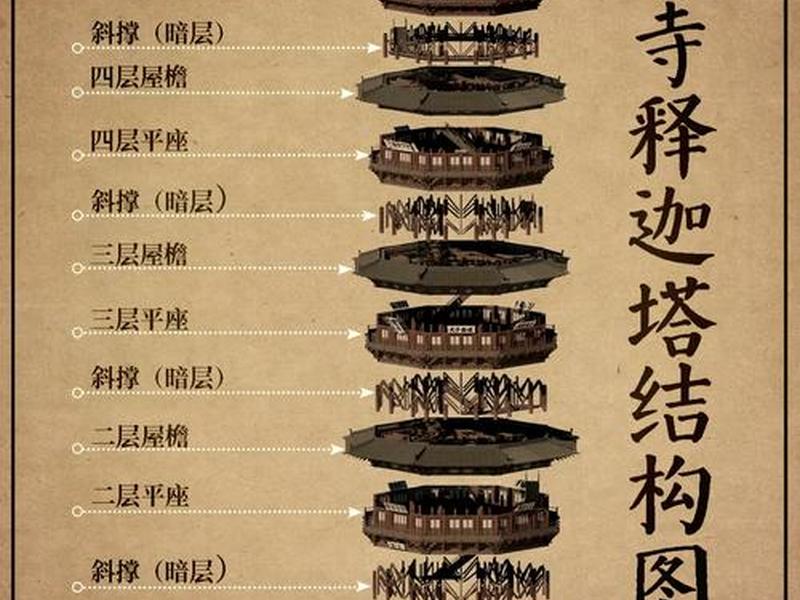 斜撑（暗层）
四层屋檐
四层平座
斜撑（暗层）
三层屋檐
三层平座
斜撑（暗层）
二层屋檐
二层平座
斜撑（暗层）
寺释迦塔结构图